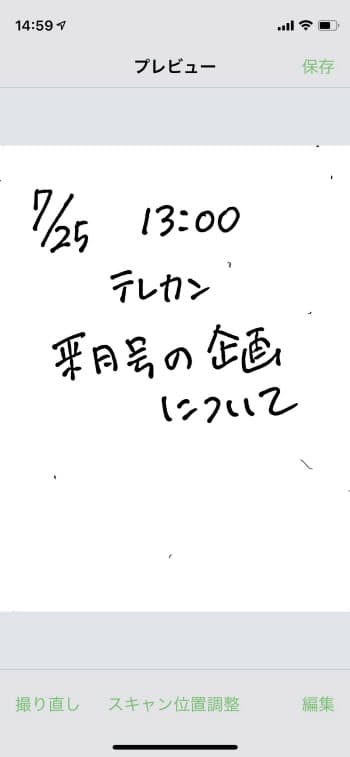 14:59
プレビュー
保存
7/25 13:00
テレカン
来月号の企画
について
撮り直し スキャン位置調整 編集